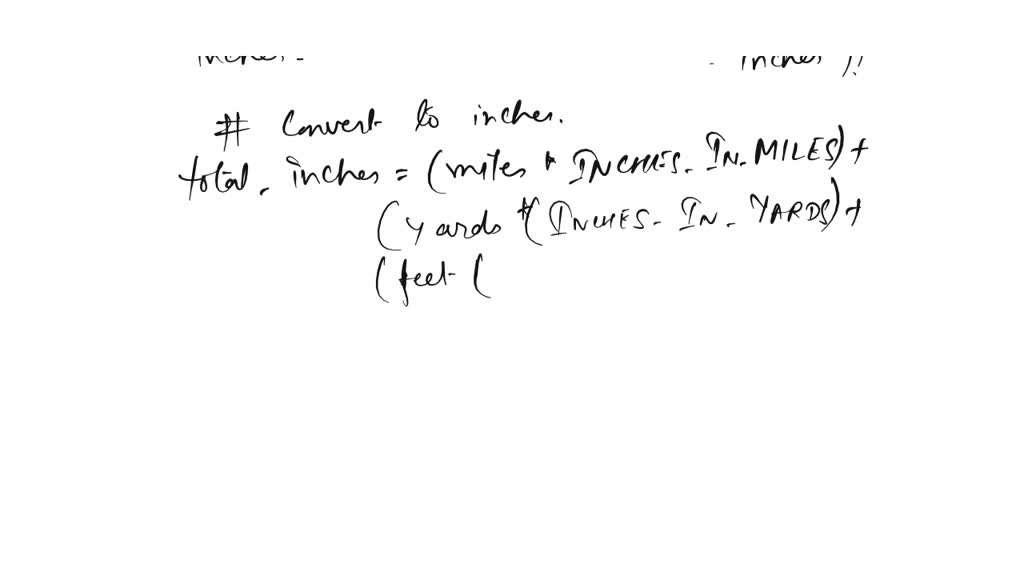 inches inches ))
# Convert to inches.
total_inches = (miles * INCHES_IN_MILES) +
(yards *( INCHES_IN_YARDS) +
(feet (